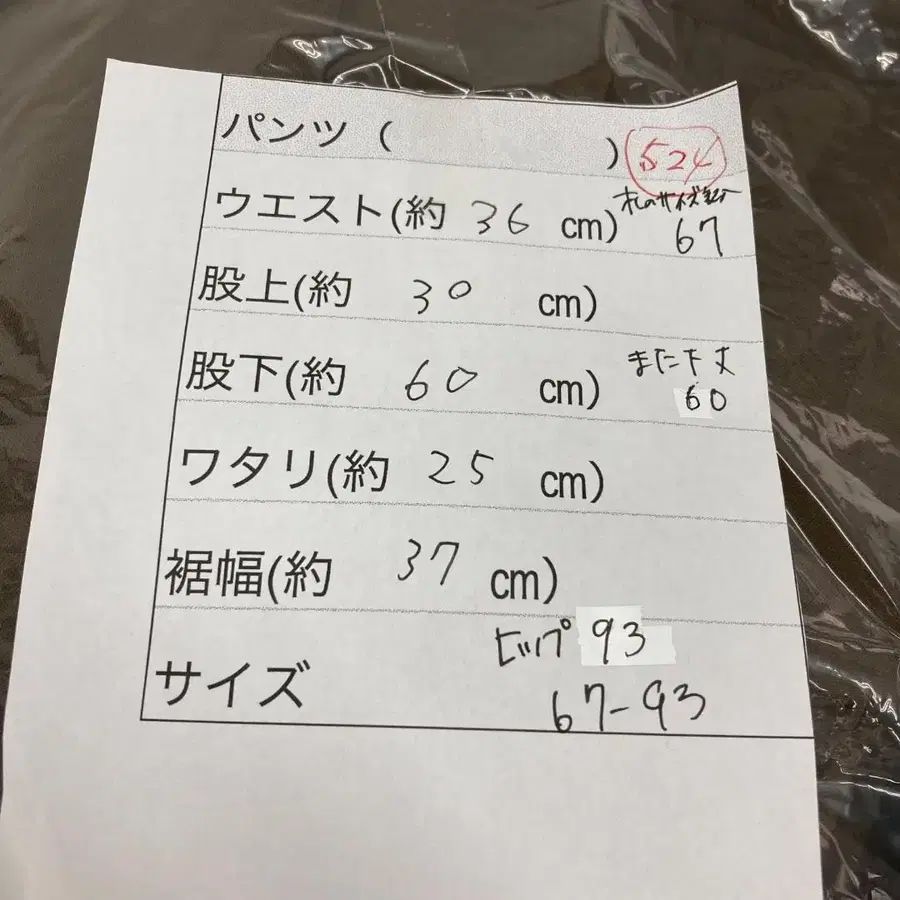 パンツ（ ） 524
ウエスト(約 36 cm) 67
股上(約 30 cm)
股下(約 60 cm) また下丈
60
ワタリ(約 25 cm)
裾幅(約 37 cm)
ヒップ 93
サイズ 67-93